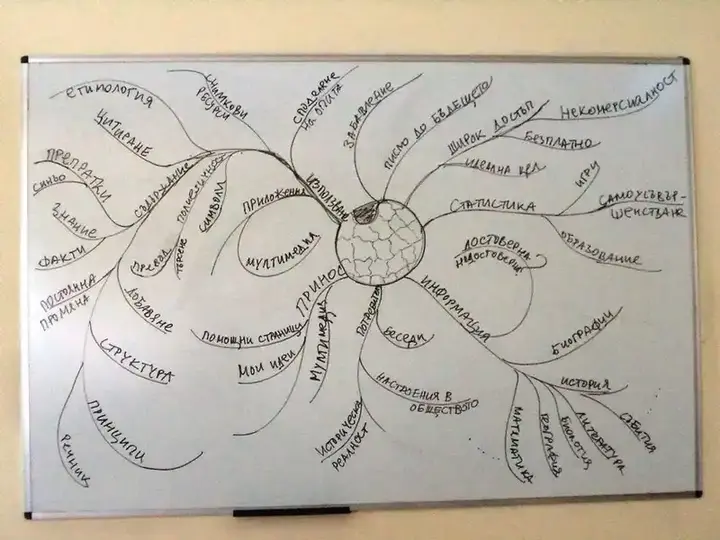 ЕТИПОЛОГИЯ
ЦИТИРАНЕ
ПРЕПРАТКИ
СИНЬО
ЗНАНИЕ
ФАКТИ
ПОСТОЯННА
ПРОМЯНА
СЪДЪРЖАНИЕ
ПРЕВОД
ТЪРСЕНЕ
СИМВОЛИ
ДОБАВЯНЕ
СТРУКТУРА
ПРИНЦИПИ
РЕЧНИК
РЕСУРСИ
СПОДЕЛЯНЕ
НА ОПИТА
ИЗПОЛЗВАНЕ
ПРИЛОЖЕНИЯ
МУЛТИМЕДИЯ
ЗАБАВЛЕНИЕ
ПИСМО ДО БЪДЕЩЕТО
ШИРОК ДОСТЪП
НЕКОМЕРСИАЛНОСТ
БЕЗПЛАТНО
ИДЕЙНА ЦЕЛ
СТАТИСТИКА
ИГРИ
САМОУСЪВЪР-
ШЕНСТВАНЕ
ОБРАЗОВАНИЕ
ДОСТОВЕРНА
НЕДОСТОВЕРНА
ИНФОРМАЦИЯ
БИОГРАФИИ
ИСТОРИЯ
СЪБИТИЯ
ЛИТЕРАТУРА
БИОЛОГИЯ
ГЕОГРАФИЯ
МАТЕМАТИКА
ПРИНОС
ПОМОЩНИ СТРАНИЦИ
МОИ ИДЕИ
МУЛТИМЕДИЯ
ПОТРЕБИТЕЛ
БЕСЕДИ
НАСТРОЕНИЯ В
ОБЩЕСТВОТО
ИСТОРИЧЕСКА
РЕАЛНОСТ